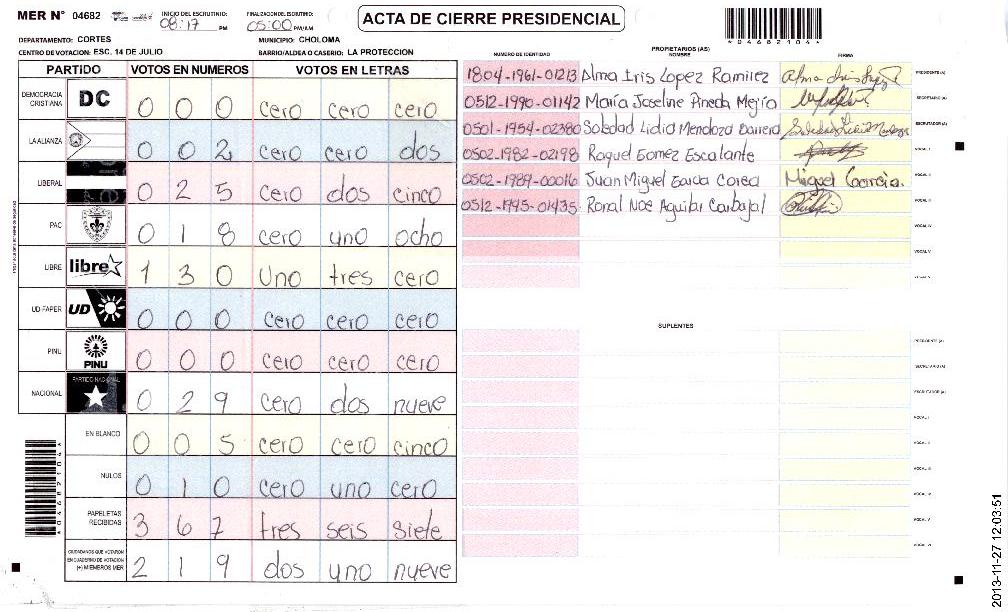 MER N° 04682
INICIO DEL ESCRUTINIO: 08:17 PM
FINALIZACION DEL ESCRUTINIO: 05:00 PM/AM
ACTA DE CIERRE PRESIDENCIAL
*04682104*
DEPARTAMENTO: CORTES
MUNICIPIO: CHOLOMA
CENTRO DE VOTACION: ESC. 14 DE JULIO
BARRIO/ALDEA O CASERIO: LA PROTECCION
PARTIDO VOTOS EN NUMEROS VOTOS EN LETRAS
DEMOCRACIA CRISTIANA DC 0 0 0 cero cero cero
LA ALIANZA 0 0 2 cero cero dos
LIBERAL 0 2 5 cero dos cinco
PAC 0 1 8 cero uno ocho
LIBRE libre 1 3 0 uno tres cero
UD FAPER UD 0 0 0 cero cero cero
PINU PINU 0 0 0 cero cero cero
NACIONAL PARTIDO NACIONAL 0 2 9 cero dos nueve
EN BLANCO 0 0 5 cero cero cinco
NULOS 0 1 0 cero uno cero
PAPELETAS RECIBIDAS 3 6 7 tres seis siete
CIUDADANOS QUE VOTARON EN CUADERNO DE VOTACION (+) MIEMBROS MER 2 1 9 dos uno nueve
*04682104*
PROPIETARIOS (AS)
NUMERO DE IDENTIDAD NOMBRE FIRMA
1804-1961-01213 Alma Iris Lopez Ramirez PRESIDENTE (A)
0512-1990-01142 María Joseline Pineda Mejía SECRETARIO (A)
0501-1954-02380 Soledad Lidia Mendoza Barrera ESCRUTADOR (A)
0502-1982-02198 Raquel Gomez Escalante VOCAL I
0502-1989-00016 Juan Miguel Garcia Corea Miguel Garcia. VOCAL II
0512-1995-01435 Ronal Noe Aguilar Carbajal VOCAL III
VOCAL IV
VOCAL V
VOCAL VI
SUPLENTES
PRESIDENTE (A)
SECRETARIO (A)
ESCRUTADOR (A)
VOCAL I
VOCAL II
VOCAL III
VOCAL IV
VOCAL V
VOCAL VI
2013-11-27 12:03:51